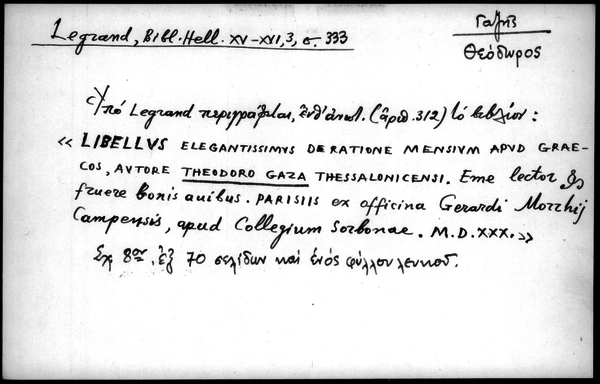 Legrand, Bibl. Hell. XV-XVI, 3, σ. 333
Γαζῆς
Θεόδωρος
Ὑπό Legrand περιγράφεται, ἔνθ' ἀνωτ. (ἀριθ. 312) τό βιβλίον:
« LIBELLVS ELEGANTISSIMVS DE RATIONE MENSIVM APVD GRAE-
COS, AVTORE THEODORO GAZA THESSALONICENSI. Eme lector &
fruere bonis auibus. PARISIIS ex officina Gerardi Morrhij
Campensis, apud Collegium Sorbonae. M.D.XXX.»
Σχ. 8ον, ἐξ 70 σελίδων καί ἑνός φύλλου λευκοῦ.